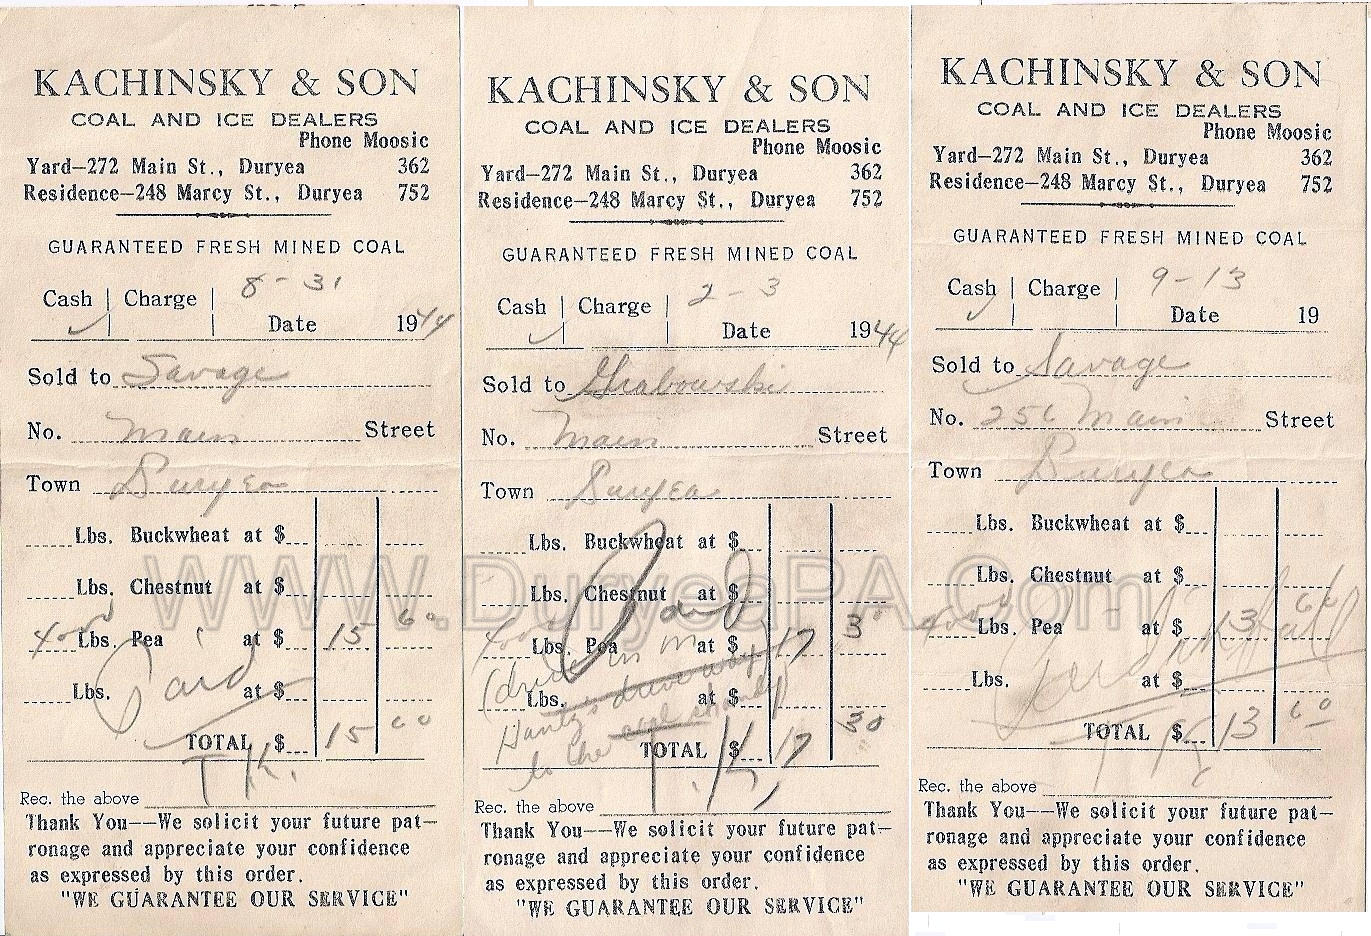 KACHINSKY & SON
COAL AND ICE DEALERS
Phone Moosic
Yard—272 Main St., Duryea 362
Residence—248 Marcy St., Duryea 752
GUARANTEED FRESH MINED COAL
Cash Charge 8-31
Date 1944
Sold to Savage
No. Main Street
Town Duryea
Lbs. Buckwheat at $
Lbs. Chestnut at $
4000 Lbs. Pea at $ 15 60
Lbs. at $
Paid
TOTAL $ 15 60
T.K.
Rec. the above
Thank You—We solicit your future pat-
ronage and appreciate your confidence
as expressed by this order.
"WE GUARANTEE OUR SERVICE"
KACHINSKY & SON
COAL AND ICE DEALERS
Phone Moosic
Yard—272 Main St., Duryea 362
Residence—248 Marcy St., Duryea 752
GUARANTEED FRESH MINED COAL
Cash Charge 2-3
Date 1944
Sold to Grabowski
No. Main Street
Town Duryea
Lbs. Buckwheat at $
Lbs. Chestnut at $
Paid
4000 Lbs. Pea at $ 17 30
(drive in
Lbs. at $
driveway
to the
TOTAL $ 17 30
T.K.
Rec. the above
Thank You—We solicit your future pat-
ronage and appreciate your confidence
as expressed by this order.
"WE GUARANTEE OUR SERVICE"
KACHINSKY & SON
COAL AND ICE DEALERS
Phone Moosic
Yard—272 Main St., Duryea 362
Residence—248 Marcy St., Duryea 752
GUARANTEED FRESH MINED COAL
Cash Charge 9-13
Date 19
Sold to Savage
No. 256 Main Street
Town Duryea
Lbs. Buckwheat at $
Lbs. Chestnut at $
4000 Lbs. Pea at $ 13 60
Lbs. at $
Paid in full
TOTAL $ 13 60
T.K.
Rec. the above
Thank You—We solicit your future pat-
ronage and appreciate your confidence
as expressed by this order.
"WE GUARANTEE OUR SERVICE"
WWW.DuryeaPA.Com